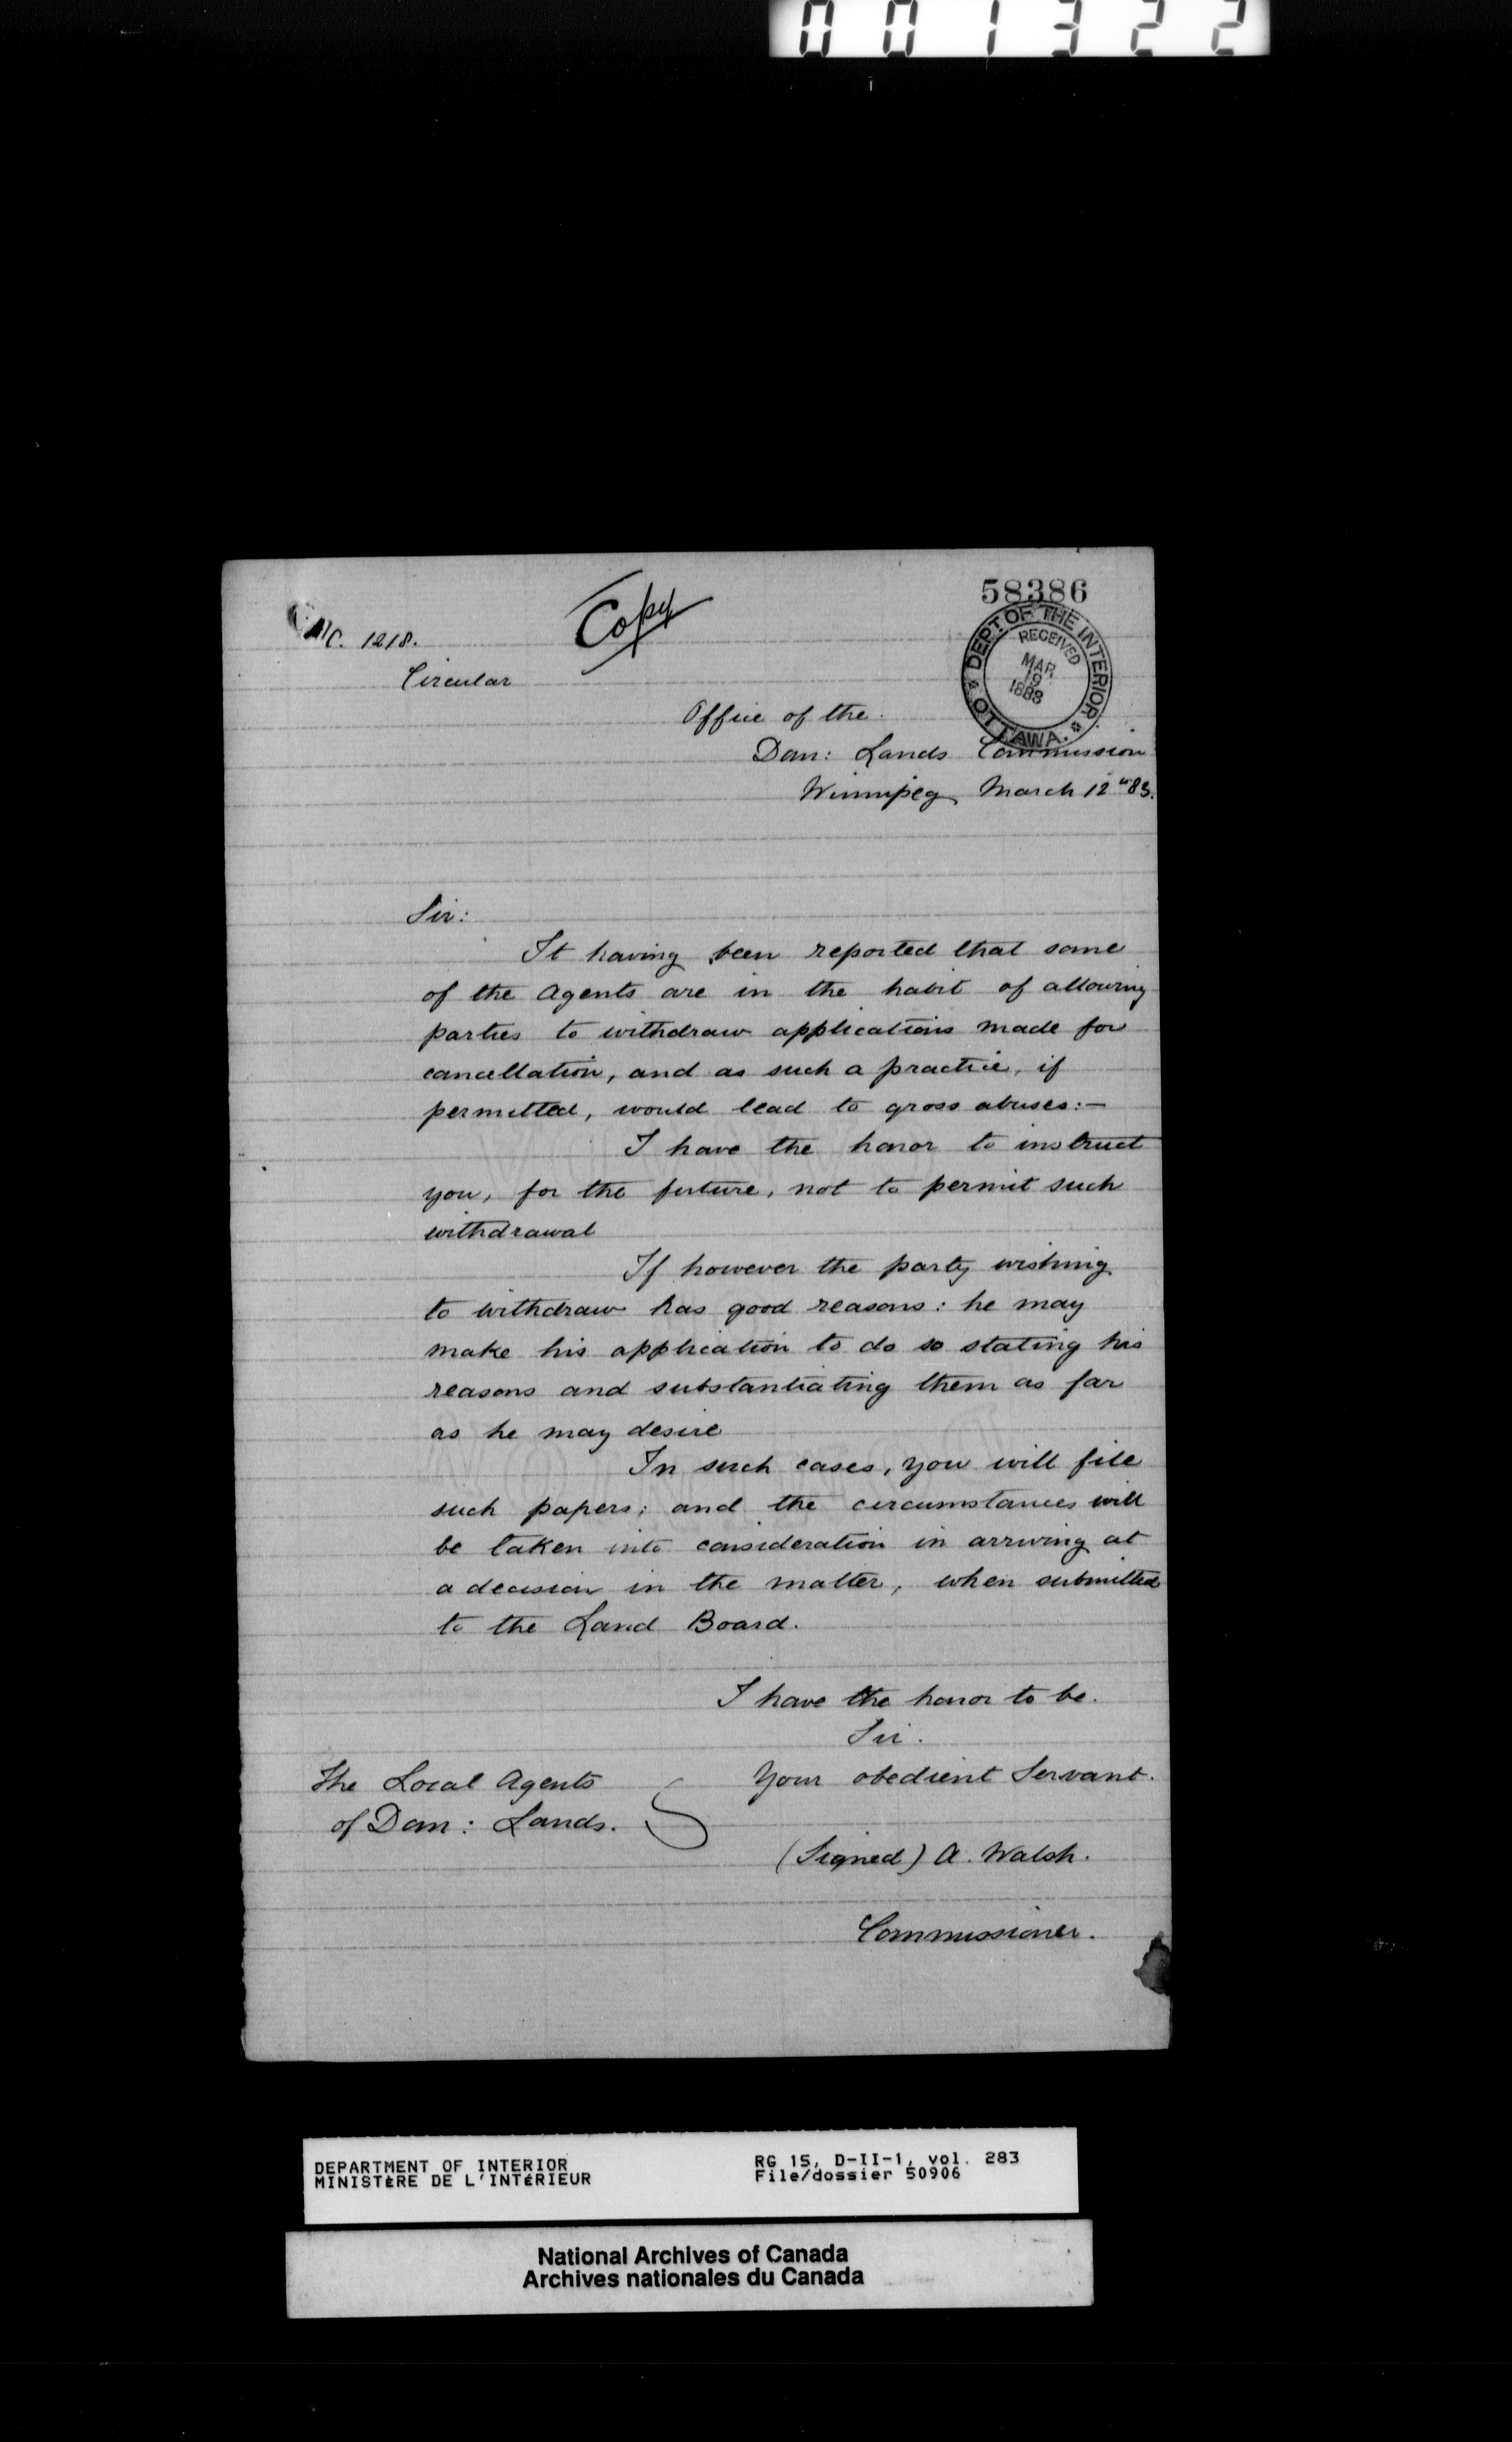 001322
58386
C. 1218.
Copy
Circular
DEPT OF THE INTERIOR
RECEIVED
MAR
19
1883
OTTAWA.
Office of the
Dom: Lands Commission
Winnipeg March 12th 83.
Sir:
It having been reported that some
of the Agents are in the habit of allowing
parties to withdraw applications made for
cancellation, and as such a practice, if
permitted, would lead to gross abuses:—
I have the honor to instruct
you, for the future, not to permit such
withdrawal
If however the party wishing
to withdraw has good reasons: he may
make his application to do so stating his
reasons and substantiating them as far
as he may desire
In such cases, you will file
such papers; and the circumstances will
be taken into consideration in arriving at
a decision in the matter, when submitted
to the Land Board.
I have the honor to be.
Sir.
Your obedient Servant.
The Local Agents
of Dom: Lands.
(Signed) A. Walsh.
Commissioner.
DEPARTMENT OF INTERIOR
MINISTÈRE DE L'INTÉRIEUR
RG 15, D-II-1, vol. 283
File/dossier 50906
National Archives of Canada
Archives nationales du Canada